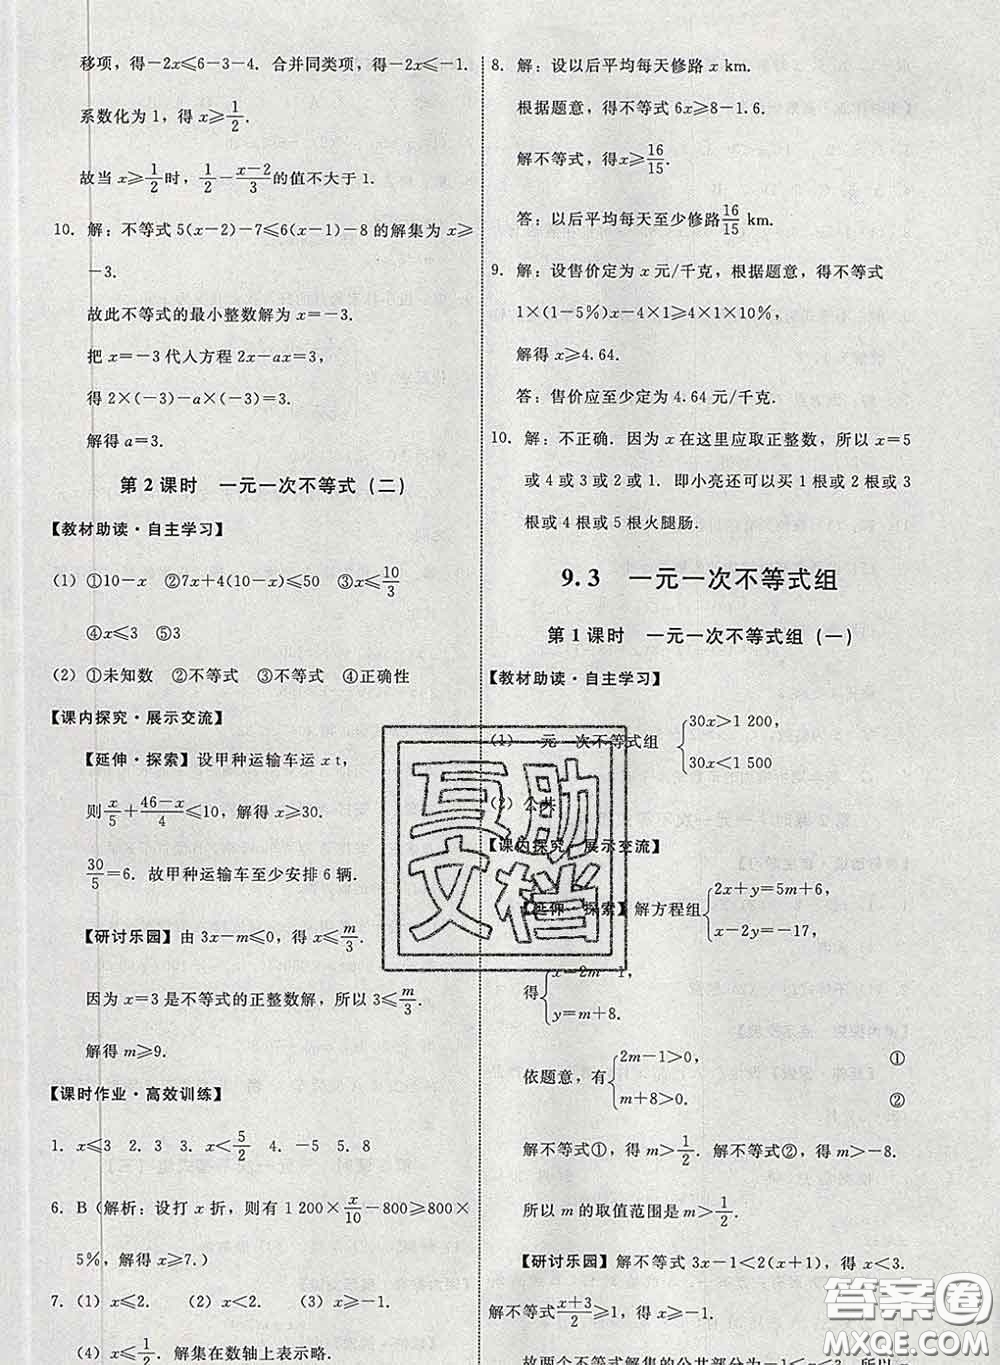 移项，得-2x≤6-3-4. 合并同类项，得-2x≤-1.
系数化为 1，得 x≥1/2.
故当 x≥1/2时，1/2-(x-2)/3的值不大于 1.
10. 解：不等式 5(x-2)-7≤6(x-1)-8 的解集为 x≥
-3.
故此不等式的最小整数解为 x=-3.
把 x=-3 代入方程 2x-ax=3，
得 2×(-3)-a×(-3)=3.
解得 a=3.
第 2 课时 一元一次不等式（二）
【教材助读·自主学习】
(1) ①10-x ②7x+4(10-x)≤50 ③x≤10/3
④x≤3 ⑤3
(2) ①未知数 ②不等式 ③不等式 ④正确性
【课内探究·展示交流】
【延伸·探索】设甲种运输车运 x t，
则x/5+(46-x)/4≤10，解得 x≥30.
30/5=6. 故甲种运输车至少安排 6 辆.
【研讨乐园】由 3x-m≤0，得 x≤m/3.
因为 x=3 是不等式的正整数解，所以 3≤m/3.
解得 m≥9.
【课时作业·高效训练】
1. x≤3 2. 3 3. x<5/2 4. -5 5. 8
6. B (解析：设打 x 折，则有 1 200×x/10-800≥800×
5%，解得 x≥7.)
7. (1) x≤2. (2) x<2. (3) x≥-1.
(4) x≤1/2. 解集在数轴上表示略.
8. 解：设以后平均每天修路 x km.
根据题意，得不等式 6x≥8-1.6.
解不等式，得 x≥16/15.
答：以后平均每天至少修路16/15 km.
9. 解：设售价定为 x 元/千克，根据题意，得不等式
1×(1-5%)x-4×1≥4×1×10%，
解得 x≥4.64.
答：售价应至少定为 4.64 元/千克.
10. 解：不正确. 因为 x 在这里应取正整数，所以 x=5
或 4 或 3 或 2 或 1. 即小亮还可以买 1 根或 2 根或 3
根或 4 根或 5 根火腿肠.
9.3 一元一次不等式组
第 1 课时 一元一次不等式组（一）
【教材助读·自主学习】
(1) 一元一次不等式组 {30x>1 200，
30x<1 500
(2) 公共
【课内探究·展示交流】
【延伸·探索】解方程组{2x+y=5m+6，
x-2y=-17，
得{x=2m-1，
y=m+8.
依题意，有{2m-1>0， ①
m+8>0. ②
解不等式①，得 m>1/2. 解不等式②，得 m>-8.
所以 m 的取值范围是 m>1/2.
【研讨乐园】解不等式 3x-1<2(x+1)，得 x<3.
解不等式(x+3)/2≥1，得 x≥-1.
故两个不等式解集的公共部分为-1≤x<3. 所以
互助
文档
答案圈
MXQE.COM